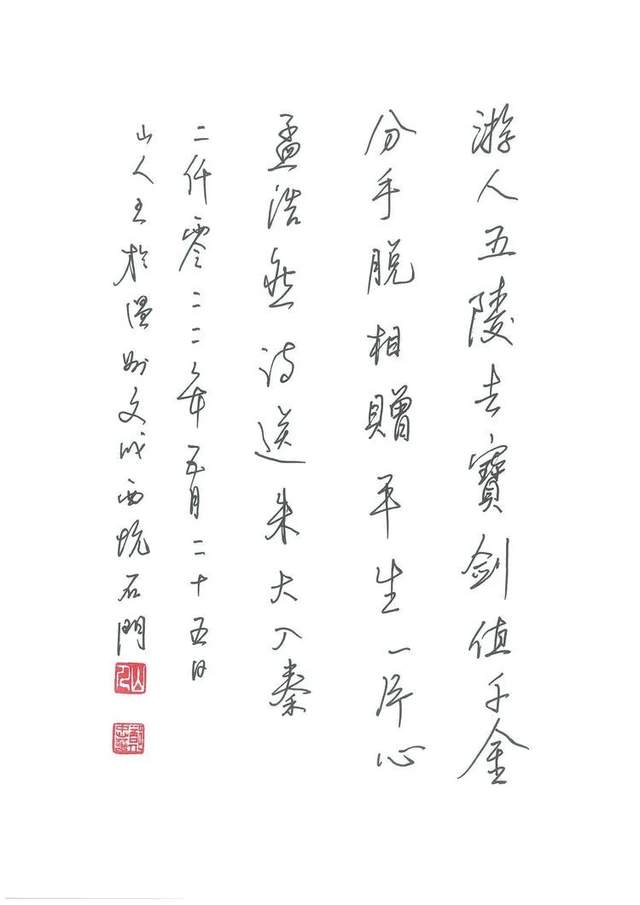 游人五陵去寶劍值千金
分手脱相贈平生一片心
孟浩然诗送朱大入秦
二仟零二二年五月二十五日
山人於温州文成西坑石門
山人